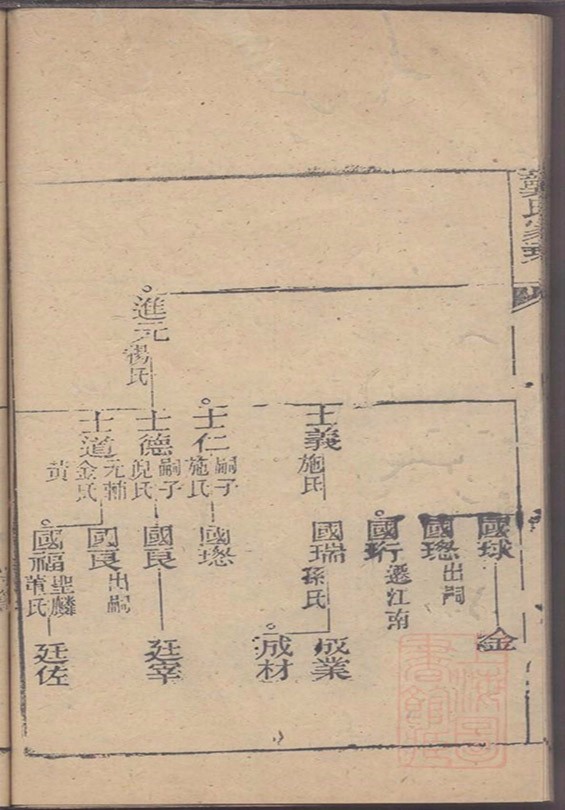 進元
楊氏
士義
施氏
士仁
嗣子
施氏
士德
嗣子
倪氏
士道
元輔
金氏
黃
國球
國璁
出嗣
國珩
遷江南
國瑞
孫氏
國璁
國良
國良
出嗣
國福
聖麟
董氏
金
成業
成材
廷宰
廷佐